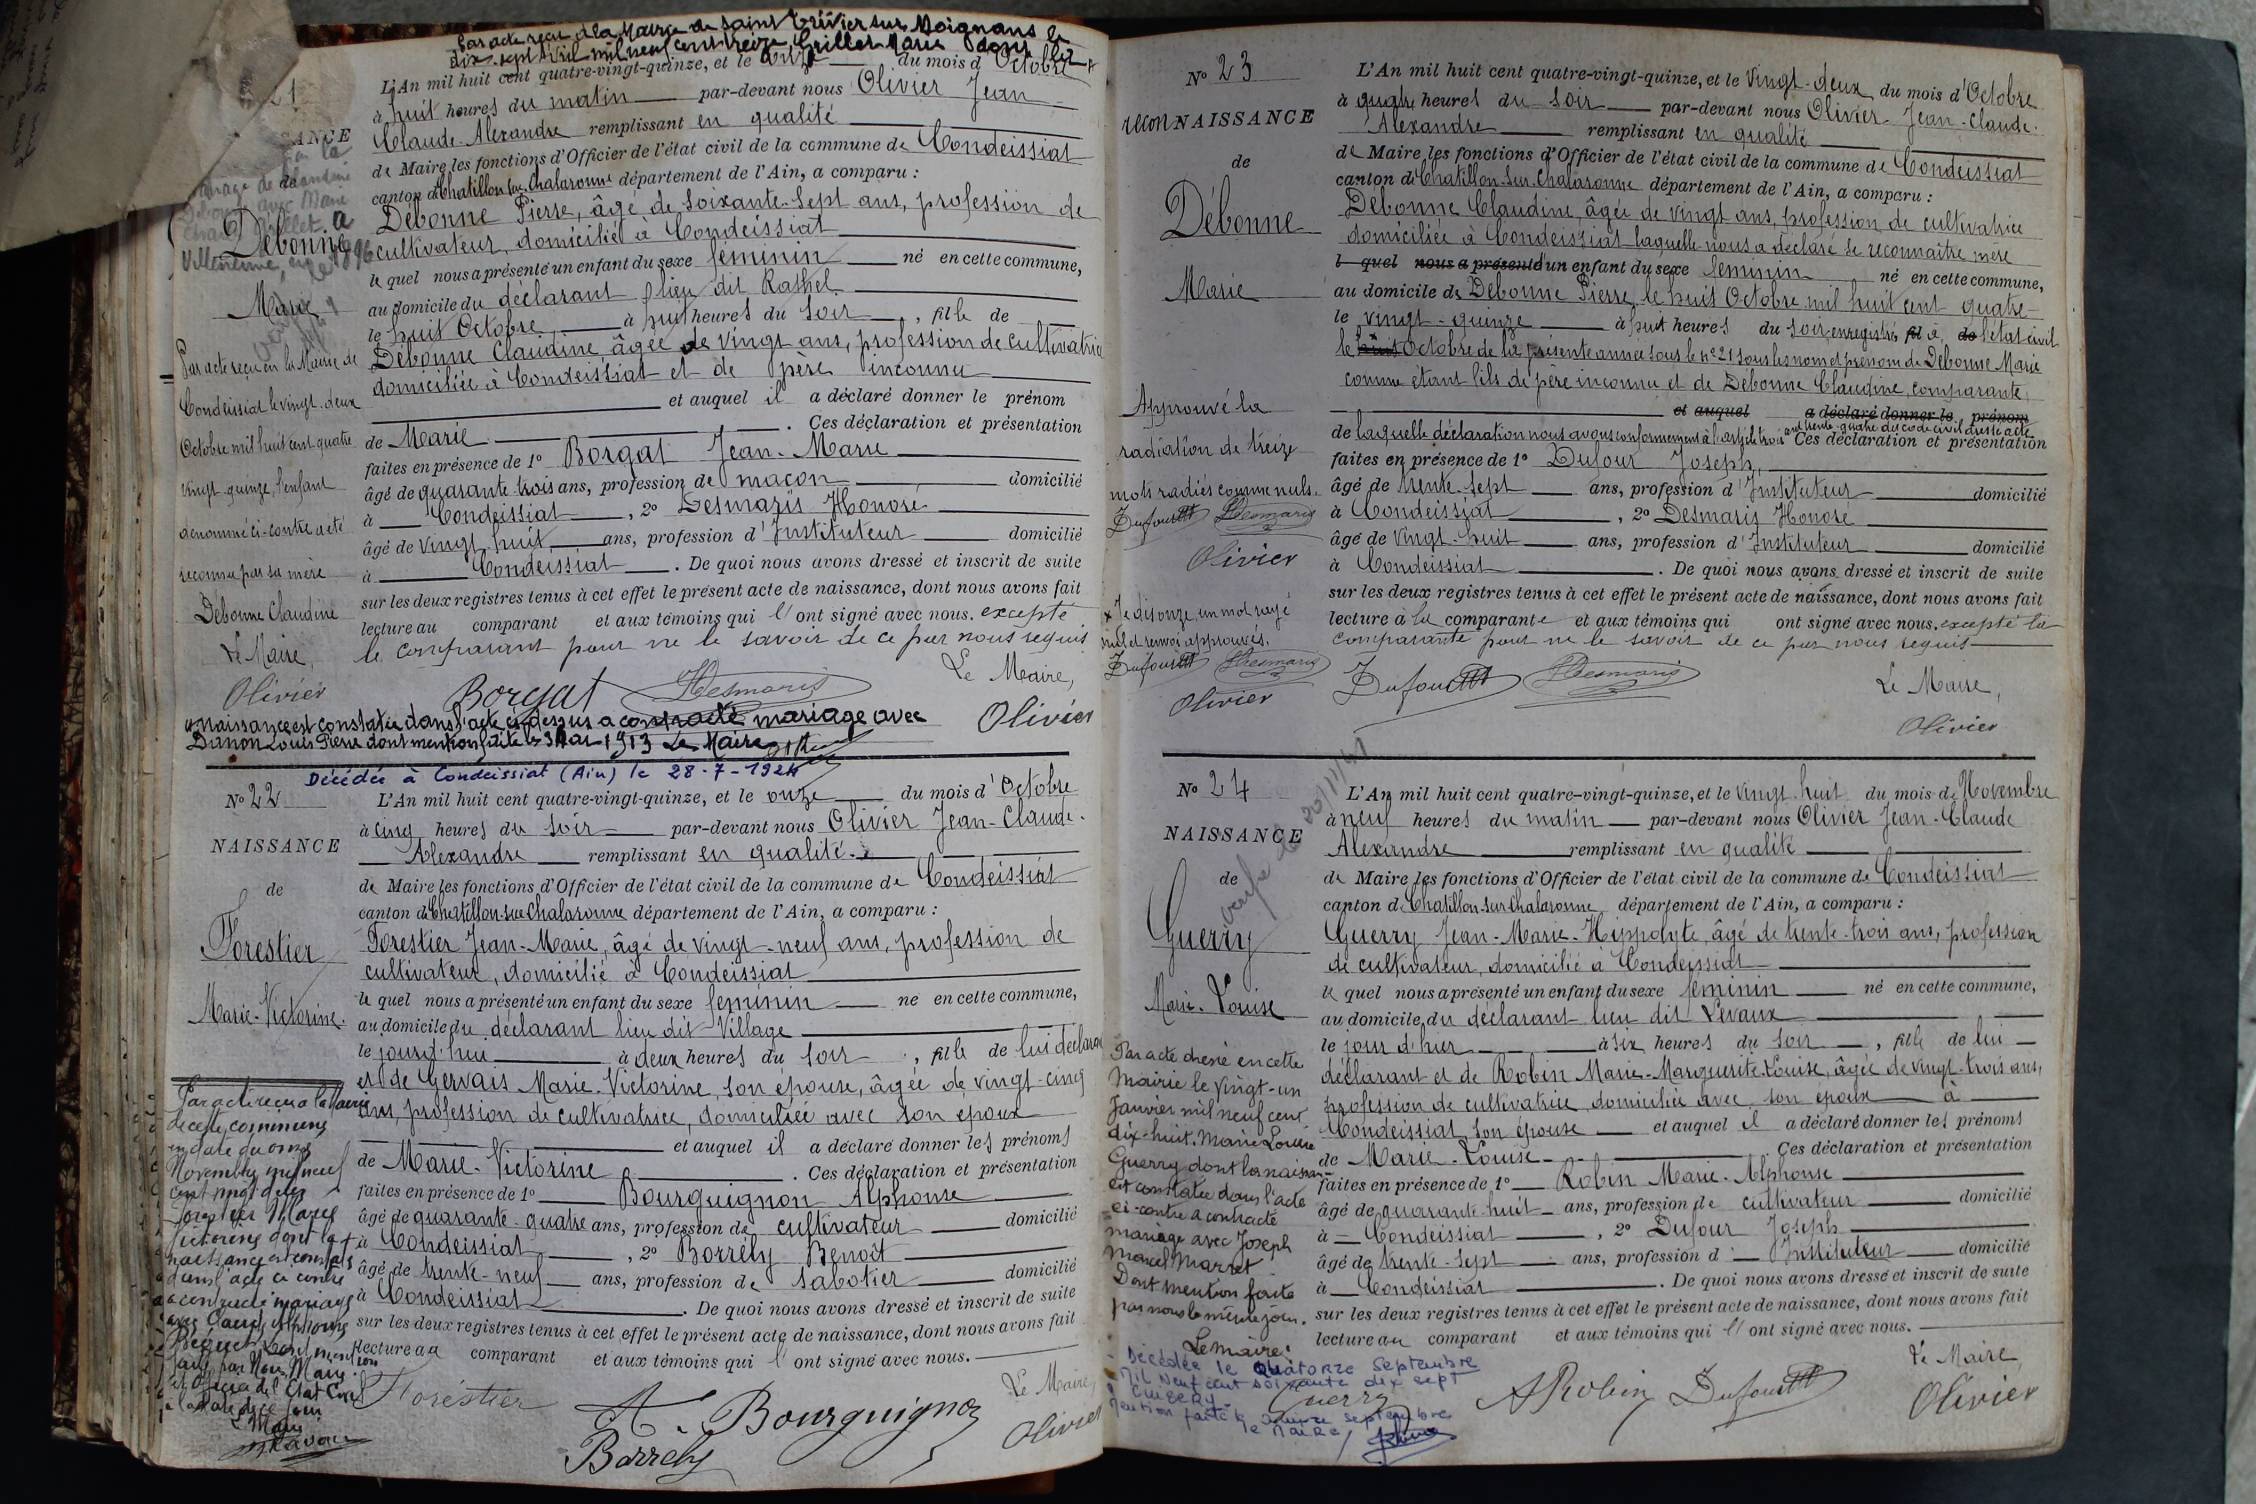 Par acte reçu à la Mairie de Saint Trivier sur Moignans le
dix-sept Avril mil neuf cent treize, Grillet Marie dont la
21
L'An mil huit cent quatre-vingt-quinze, et le onze du mois d'Octobre
à huit heures du matin par-devant nous Olivier Jean
Claude Alexandre remplissant en qualité
de Maire les fonctions d'Officier de l'état civil de la commune de Condeissiat
canton de Chatillon sur Chalaronne département de l'Ain, a comparu :
Débonne Pierre, âgé de soixante-sept ans, profession de
cultivateur, domicilié à Condeissiat
le quel nous a présenté un enfant du sexe féminin né en cette commune,
au domicile du déclarant lieu dit Rashel
le huit Octobre à huit heures du soir, fille de
Débonne Claudine âgée de vingt ans, profession de cultivatrice
domiciliée à Condeissiat et de père inconnu
et auquel il a déclaré donner le prénom
de Marie . Ces déclaration et présentation
faites en présence de 1º Borgat Jean-Marie
âgé de quarante-trois ans, profession de maçon domicilié
à Condeissiat, 2º Desmaris Honoré
âgé de vingt huit ans, profession d'Instituteur domicilié
à Condeissiat. De quoi nous avons dressé et inscrit de suite
sur les deux registres tenus à cet effet le présent acte de naissance, dont nous avons fait
lecture au comparant et aux témoins qui l'ont signé avec nous. excepté
le comparant pour ne le savoir de ce par nous requis
Le Maire,
Borgat Desmaris Olivier
NAISSANCE
de
Débonne
Marie
Par acte reçu en la Mairie de
Condeissiat le vingt-deux
Octobre mil huit cent quatre
vingt-quinze, l'enfant
dénommé ci-contre a été
reconnu par sa mère
Débonne Claudine
Le Maire,
Olivier
naissance est constatée dans l'acte ci-dessus a contracté mariage avec
Danon Louis Pierre dont mention faite le 3 Mai 1913 Le Maire
Décédée à Condeissiat (Ain) le 28-7-1924
Nº 22
NAISSANCE
de
Forestier
Marie-Victorine.
L'An mil huit cent quatre-vingt-quinze, et le onze du mois d'Octobre
à cinq heures du soir par-devant nous Olivier Jean-Claude-
Alexandre remplissant en qualité
de Maire les fonctions d'Officier de l'état civil de la commune de Condeissiat
canton de Chatillon-sur-Chalaronne département de l'Ain, a comparu :
Forestier Jean-Marie, âgé de vingt-neuf ans, profession de
cultivateur, domicilié à Condeissiat
le quel nous a présenté un enfant du sexe féminin né en cette commune,
au domicile du déclarant lieu dit Village
le jourd'hui à deux heures du soir, fille de lui déclarant
et de Gervais Marie-Victorine, son épouse, âgée de vingt-cinq
ans, profession de cultivatrice, domiciliée avec son époux
et auquel il a déclaré donner les prénoms
de Marie-Victorine . Ces déclaration et présentation
faites en présence de 1º Bourguignon Alphonse
âgé de quarante-quatre ans, profession de cultivateur domicilié
à Condeissiat, 2º Borrély Benoît
âgé de trente-neuf ans, profession de sabotier domicilié
à Condeissiat. De quoi nous avons dressé et inscrit de suite
sur les deux registres tenus à cet effet le présent acte de naissance, dont nous avons fait
lecture au comparant et aux témoins qui l'ont signé avec nous.
Forestier A. Bourguignon Le Maire,
Borrély Olivier
Par acte reçu à la Mairie
de cette commune
en date du onze
Novembre mil neuf
cent vingt deux
Forestier Marie
Victorine dont la
naissance est constatée
dans l'acte ci contre
a contracté mariage
avec
dont mention
faite par Nous Maire
et Officier de l'Etat Civil
à la date de ce jour
Le Maire
Nº 23
reconNAISSANCE
de
Débonne
Marie
L'An mil huit cent quatre-vingt-quinze, et le vingt-deux du mois d'Octobre
à quatre heures du soir par-devant nous Olivier-Jean-Claude-
Alexandre remplissant en qualité
de Maire les fonctions d'Officier de l'état civil de la commune de Condeissiat
canton de Chatillon-sur-Chalaronne département de l'Ain, a comparu :
Débonne Claudine, âgée de vingt ans, profession de cultivatrice
domiciliée à Condeissiat laquelle nous a déclaré se reconnaître mère
l quel nous a présenté d'un enfant du sexe féminin né en cette commune,
au domicile de Débonne Pierre, le huit Octobre mil huit cent quatre-
le vingt-quinze à huit heures du soir, enregistré à l'état civil
le huit Octobre de la présente année sous le nº 21 sous les nom et prénom de Débonne Marie
comme étant fils de père inconnu et de Débonne Claudine, comparante
et auquel a déclaré donner le prénom
de laquelle déclaration nous avons conformément à l'article trois cent trente-quatre du code civil dressé acte Ces déclaration et présentation
faites en présence de 1º Dufour Joseph,
âgé de trente-sept ans, profession d'Instituteur domicilié
à Condeissiat, 2º Desmaris Honoré
âgé de vingt-huit ans, profession d'Instituteur domicilié
à Condeissiat. De quoi nous avons dressé et inscrit de suite
sur les deux registres tenus à cet effet le présent acte de naissance, dont nous avons fait
lecture à la comparante et aux témoins qui ont signé avec nous, excepté la
comparante pour ne le savoir de ce par nous requis
Le Maire,
Dufour Desmaris Olivier
Approuvé la
radiation de treize
mots radiés comme nuls.
Dufour Desmaris
Olivier
x Je dis onze, un mot rayé
nul et renvoi approuvés.
Dufour Desmaris
Olivier
Nº 24
NAISSANCE
de
Guerry
Marie-Louise
L'An mil huit cent quatre-vingt-quinze, et le vingt huit du mois de Novembre
à neuf heures du matin par-devant nous Olivier Jean-Claude
Alexandre remplissant en qualité
de Maire les fonctions d'Officier de l'état civil de la commune de Condeissiat
canton de Chatillon-sur-Chalaronne département de l'Ain, a comparu :
Guerry Jean-Marie-Hippolyte, âgé de trente-trois ans, profession
de cultivateur, domicilié à Condeissiat
le quel nous a présenté un enfant du sexe féminin né en cette commune,
au domicile du déclarant lieu dit Levaux
le jour d'hier à six heures du soir, fille de lui
déclarant et de Robin Marie-Marguerite-Louise, âgée de vingt-trois ans,
profession de cultivatrice domiciliée avec son époux à
Condeissiat son épouse et auquel il a déclaré donner les prénoms
de Marie-Louise . Ces déclaration et présentation
faites en présence de 1º Robin Marie-Alphonse
âgé de quarante-huit ans, profession de cultivateur domicilié
à Condeissiat, 2º Dufour Joseph
âgé de trente-sept ans, profession d'Instituteur domicilié
à Condeissiat. De quoi nous avons dressé et inscrit de suite
sur les deux registres tenus à cet effet le présent acte de naissance, dont nous avons fait
lecture au comparant et aux témoins qui l'ont signé avec nous.
Le Maire,
Guerry A Robin Dufour Olivier
Par acte dressé en cette
Mairie le vingt-un
Janvier mil neuf cent
dix-huit. Marie Louise
Guerry dont la naissance
est constatée dans l'acte
ci-contre a contracté
mariage avec Joseph
Marcel Marret
Dont mention faite
par nous le même jour.
Le maire:
Décédée le quatorze septembre
mil neuf cent soixante dix sept
à Cuisery.
Mention faite le septembre
Le Maire,